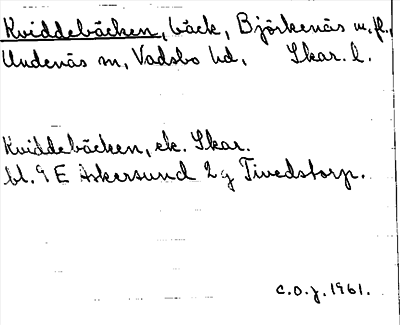 Kviddebäcken, bäck, Björkenäs m.fl.,
Undenäs sn, Vadsbo hd, Skar. l.
Kviddebäcken, ek. Skar.
bl. 9 E Askersund 2 g Tivedstorp.
C.O.J. 1961.